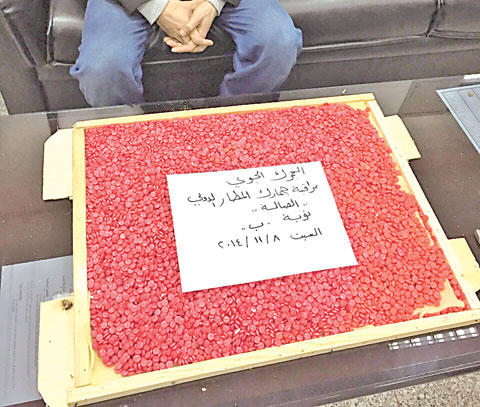 الجمرك الجوي
مراقبة جمارك المطار الدولي
" الصالة "
نوبة " ب "
السبت ٢٠١٤/١١/٨